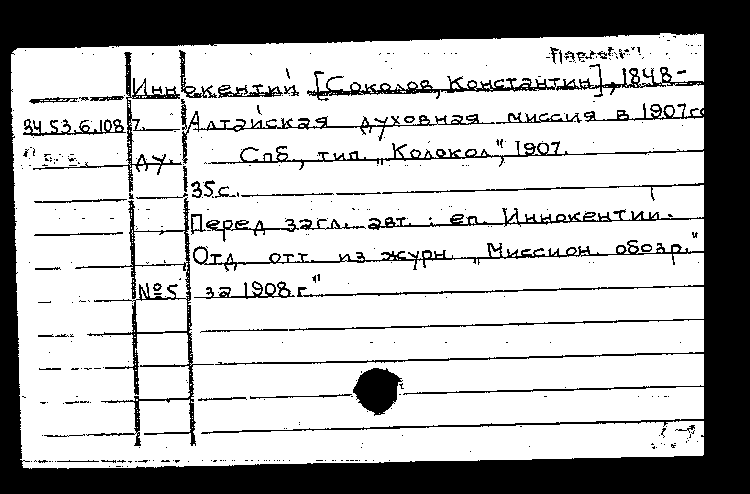 Иннокентий [Соколов, Константин], 1848-
34.53.6.108 7. Алтайская духовная миссия в 1907го
ду. Спб., тип. „Колокол“, 1907.
35с.
Перед загл. авт.: еп. Иннокентий.
Отд. отт. из журн. „Миссион. обозр."
№5 за 1908г."